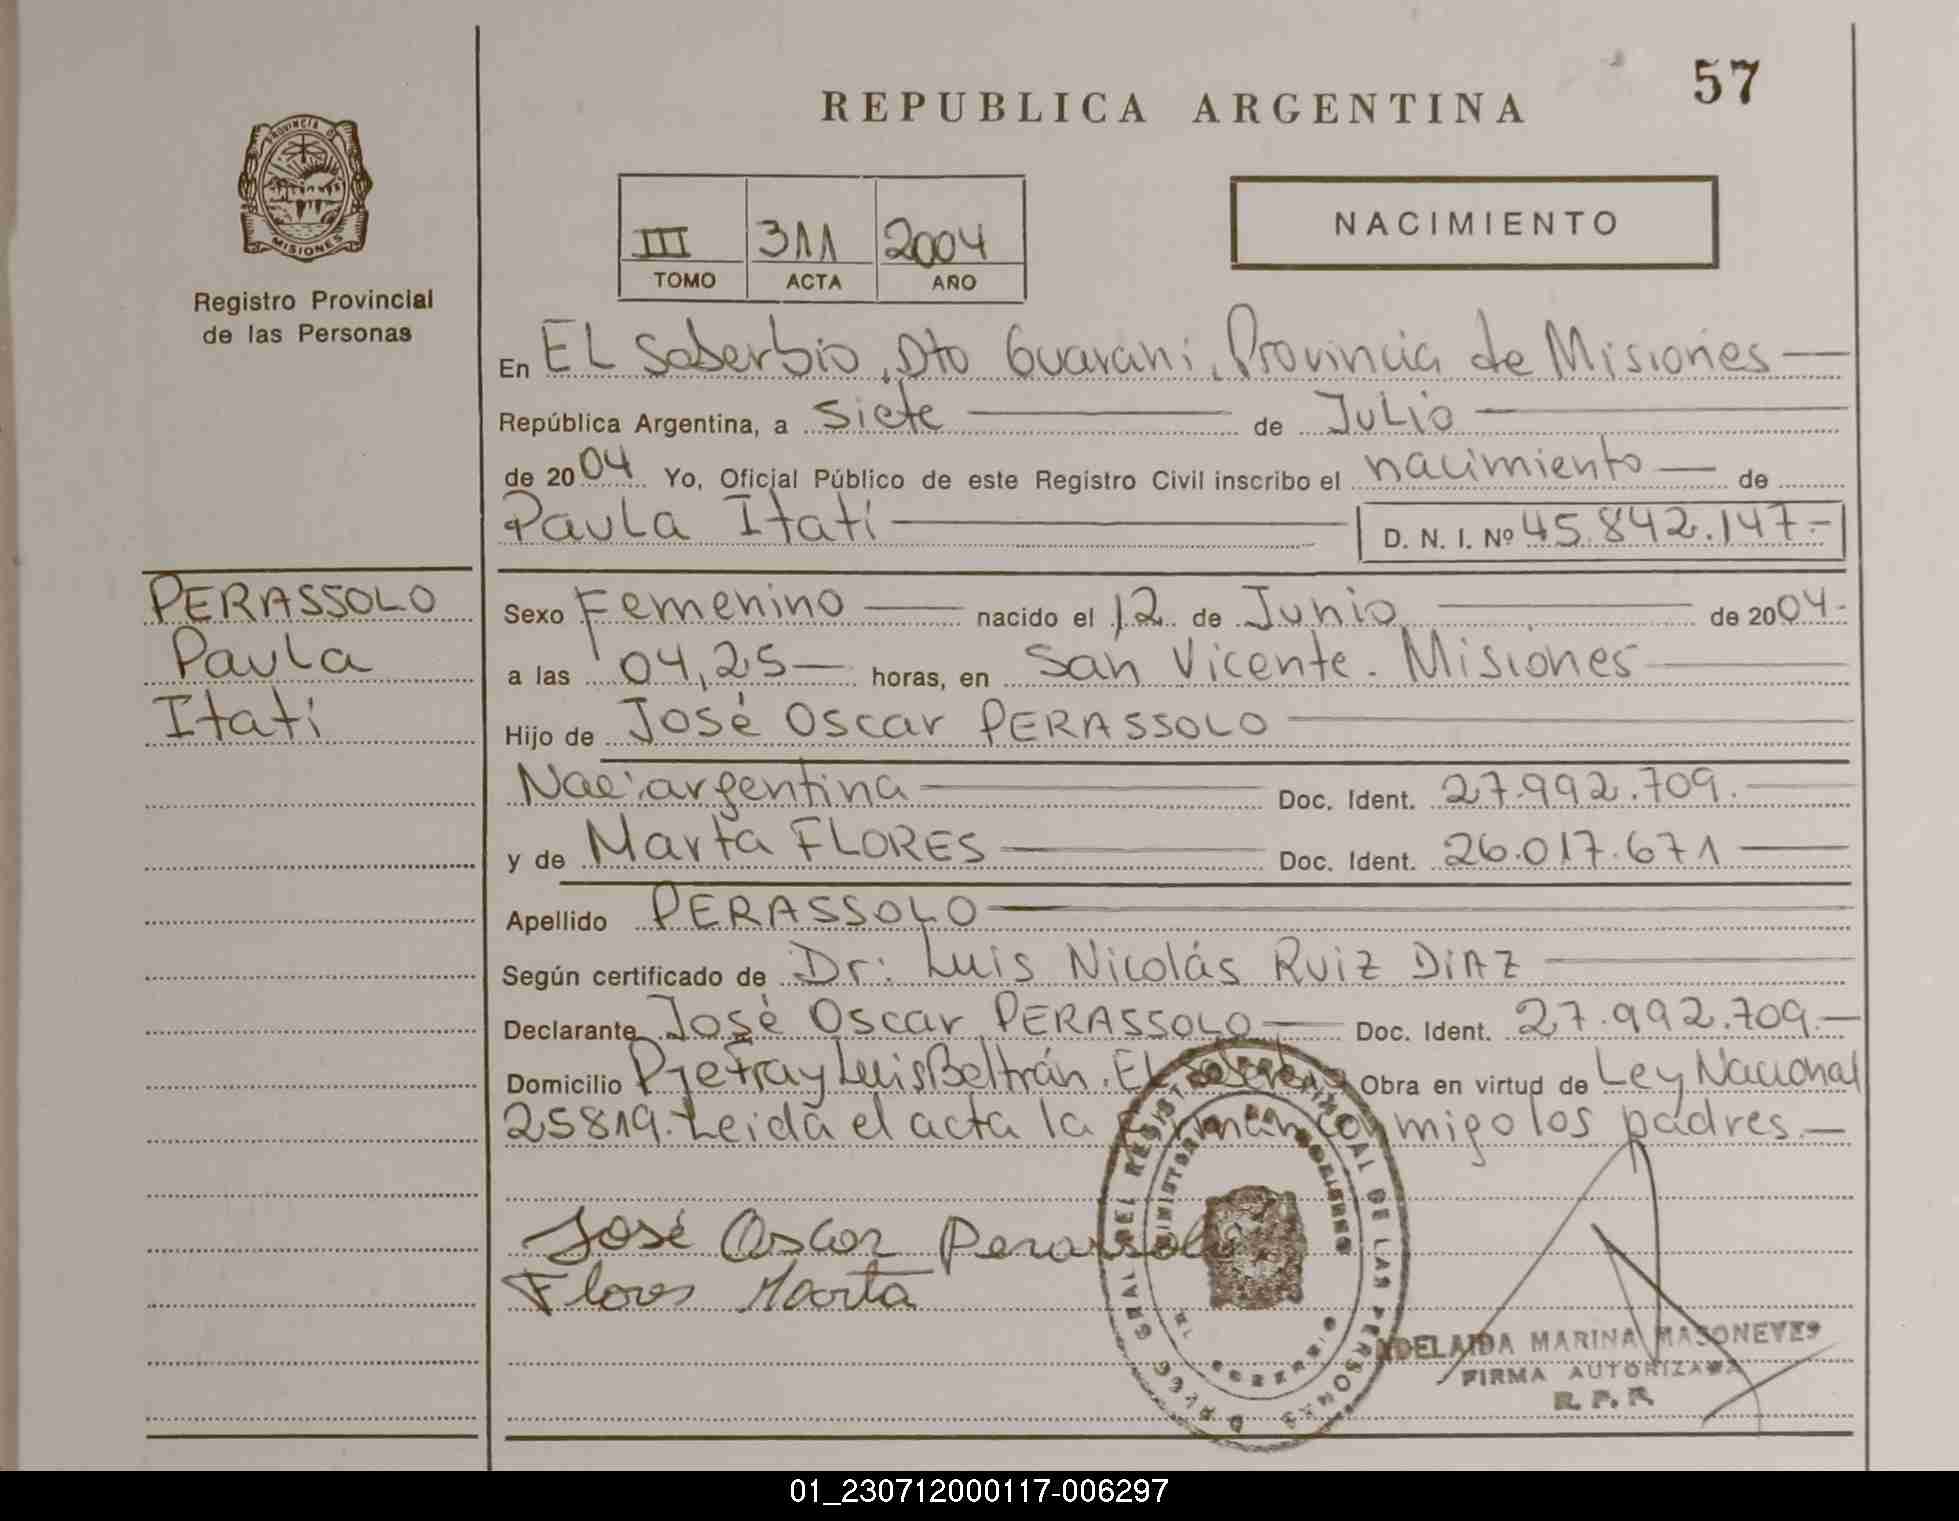 57
REPUBLICA ARGENTINA
PROVINCIA D
MISIONES
Registro Provincial
de las Personas
III 311 2004
TOMO ACTA AÑO
NACIMIENTO
En EL Soberbio, Dto Guaraní, Provincia de Misiones
República Argentina, a Siete de Julio
de 2004 Yo, Oficial Público de este Registro Civil inscribo el nacimiento de
Paula Itatí D. N. I. Nº 45.842.147.-
PERASSOLO
Paula
Itatí
Sexo Femenino nacido el 12 de Junio de 2004.
a las 04,25 horas, en San Vicente. Misiones
Hijo de José Oscar PERASSOLO
Nac: argentina Doc. Ident. 27.992.709.
y de Marta FLORES Doc. Ident. 26.017.671
Apellido PERASSOLO
Según certificado de Dr: Luis Nicolás Ruiz DiAZ
Declarante José Oscar PERASSOLO Doc. Ident. 27.992.709.-
Domicilio Pje Fray Luis Beltrán. El Soberbio Obra en virtud de Ley Nacional
25819. Leida el acta la firman conmigo los padres.-
José Oscar Perassolo
Flores Marta
GRAL DEL REGIST PROVINCIAL DE LAS PERSONAS
MISIONES
MARINA MASONEVES
FIRMA AUTORIZADA
R. P. P.
01_230712000117-006297